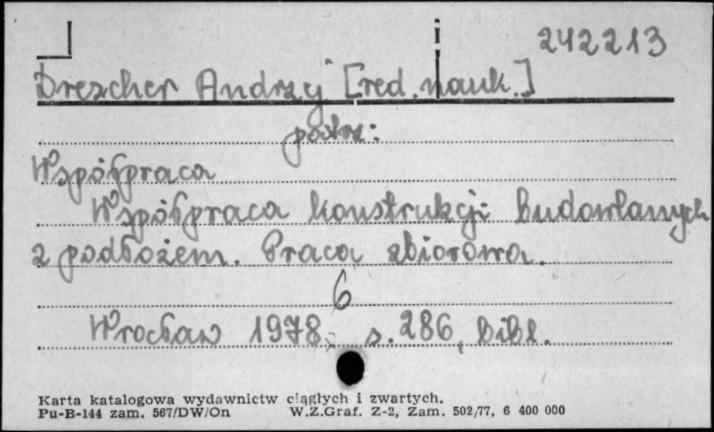 i 242213
Drescher Andrzej [red. nauk.]
patrz:
Współpraca
Współpraca konstrukcji budowlanych
z podłożem. Praca zbiorowa.
6
Wrocław 1978, s. 286, bibl.
Karta katalogowa wydawnictw ciągłych i zwartych.
Pu-B-144 zam. 567/DW/On W.Z.Graf. Z-2, Zam. 502/77, 6 400 000